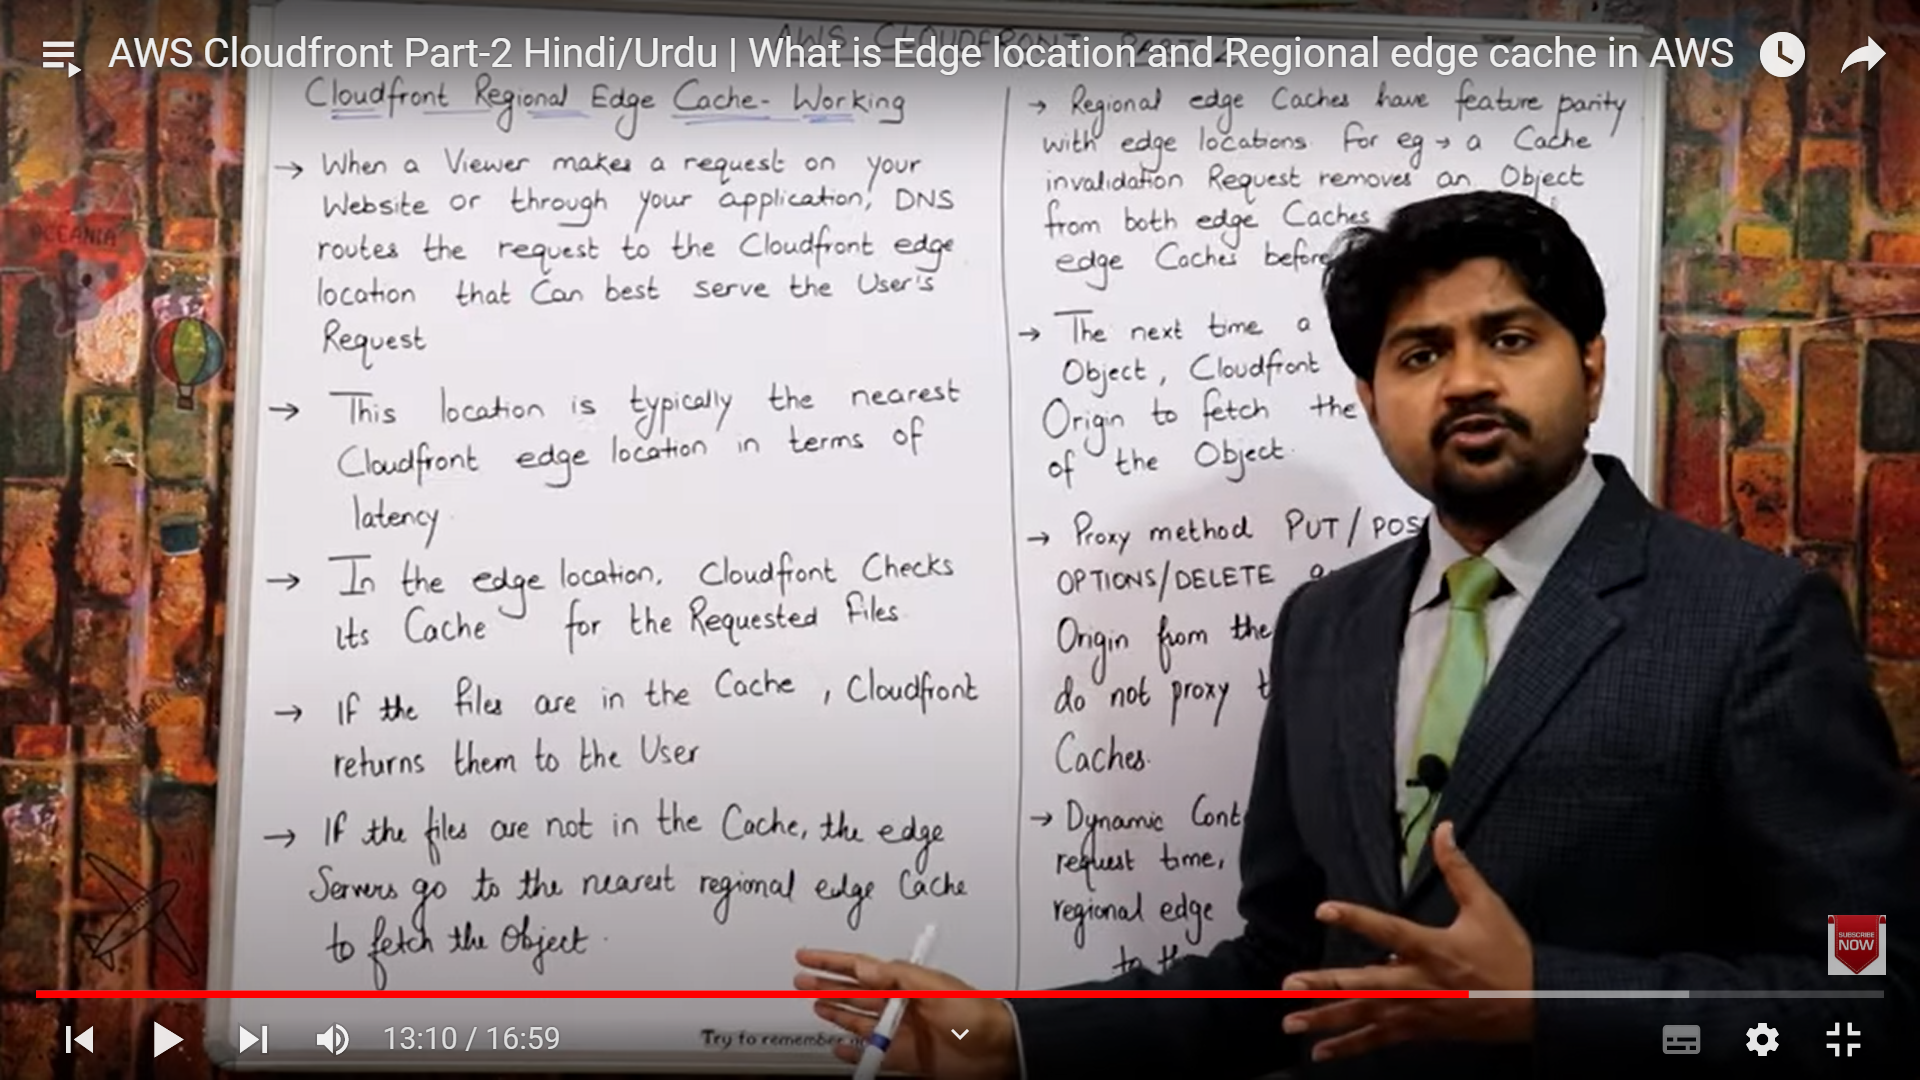 AWS Cloudfront Part-2 Hindi/Urdu | What is Edge location and Regional edge cache in AWS
AWS CLOUDFRONT PART 2
Cloudfront Regional Edge Cache- Working
→ When a Viewer makes a request on your
Website or through your application, DNS
routes the request to the Cloudfront edge
location that Can best serve the User's
Request
→ This location is typically the nearest
Cloudfront edge location in terms of
latency.
→ In the edge location, Cloudfront Checks
its Cache for the Requested files.
→ If the files are in the Cache, Cloudfront
returns them to the User
→ If the files are not in the Cache, the edge
Servers go to the nearest regional edge Cache
to fetch the Object.
→ Regional edge Caches have feature parity
with edge locations. For eg → a Cache
invalidation Request removes an Object
from both edge Caches
edge Caches before
→ The next time a
Object, Cloudfront
Origin to fetch the
of the Object.
→ Proxy method PUT/POS
OPTIONS/DELETE
Origin from the
do not proxy
Caches.
→ Dynamic Cont
request time,
regional edge
to
OCEANIA
Try to remember
SUBSCRIBE
NOW
13:10 / 16:59